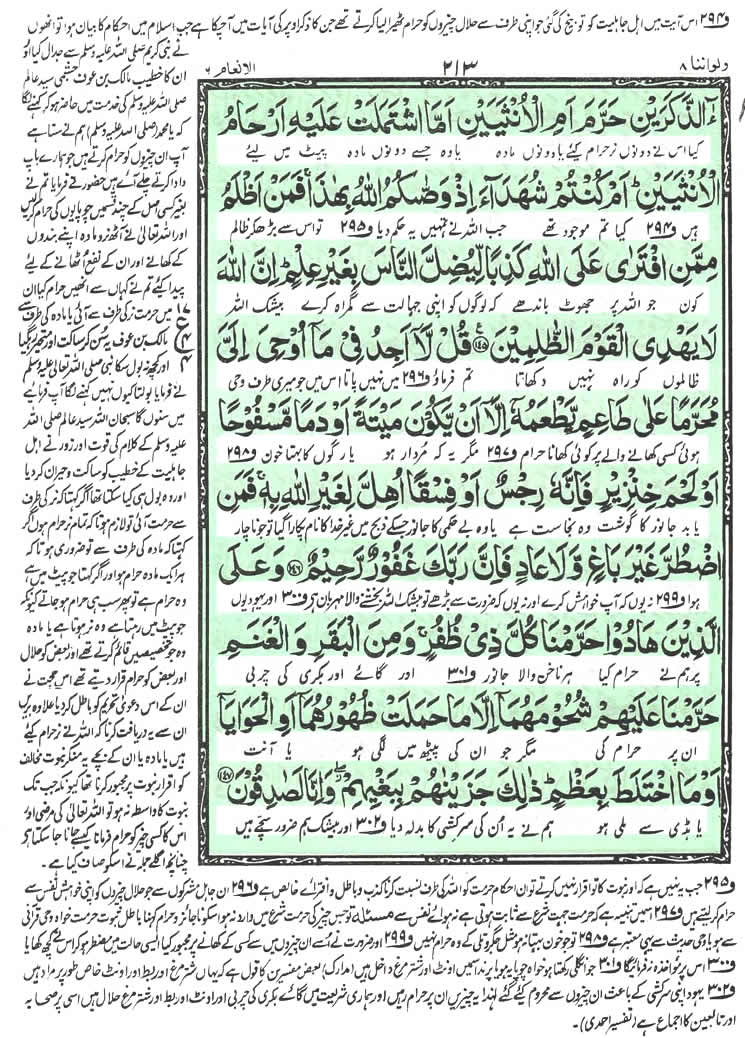 ف۲۹۴ اس آیت میں اہل جاہلیت کو توبیخ کی گئی جو اپنی طرف سے حلال چیزوں کو حرام ٹھیرا لیا کرتے تھے جن کا ذکر اوپر کی آیات میں آچکا ہے جب اسلام میں احکام کا بیان ہوا تو انھوں
نے نبی کریم صلی اللہ علیہ وسلم سے جدال کیا اور
ان کا خطیب مالک بن عوف جشمی سید عالم
صلی اللہ علیہ وسلم کی خدمت میں حاضر ہو کر کہنے لگا
کہ یا محمد (صلی اللہ علیہ وسلم) ہم نے سنا ہے
آپ ان چیزوں کو حرام کرتے ہیں جو ہمارے باپ
دادا کرتے چلے آئے ہیں حضور نے فرمایا تم نے
بغیر کسی اصل کے چند قسمیں چوپایوں کی حرام کر لیں
اور اللہ تعالیٰ نے آٹھ نر و مادہ اپنے بندوں
کے کھانے اور ان کے نفع اٹھانے کے لیے
پیدا کئے تم نے کہاں سے انھیں حرام کیا ان
میں حرمت نر کی طرف سے آئی یا مادہ کی طرف سے
مالک بن عوف یہ سن کر ساکت اور متحیر رہ گیا
اور کچھ نہ بول سکا نبی صلی اللہ تعالیٰ علیہ وسلم
نے فرمایا بولتا کیوں نہیں کہنے لگا آپ فرمایئے
میں سنوں گا سبحان اللہ سید عالم صلی اللہ
علیہ وسلم کے کلام کی قوت اور زور نے اہل
جاہلیت کے خطیب کو ساکت و حیران کر دیا
اور وہ بول ہی کیا سکتا تھا اگر کہتا کہ نر کی طرف
سے حرمت آئی تو لازم ہوتا کہ تمام نر حرام ہوں اگر
کہتا کہ مادہ کی طرف سے تو ضروری ہوتا کہ
ہر ایک مادہ حرام ہو اور اگر کہتا جو پیٹ میں ہے
وہ حرام ہے تو پھر سب ہی حرام ہو جاتے کیونکہ
جو پیٹ میں رہتا ہے وہ نر ہوتا ہے یا مادہ
وہ جو تخصیصیں قائم کرتے تھے اور بعض کو حلال
اور بعض کو حرام قرار دیتے تھے اس حجت نے
ان کے اس دعویٰ تحریم کو باطل کر دیا علاوہ بریں
ان سے یہ دریافت کرنا کہ اللہ نے نر حرام کیے
ہیں یا مادہ یا ان کے بچے یہ منکر نبوت مخالف
کو اقرار نبوت پر مجبور کرتا تھا کیونکہ جب تک
نبوت کا واسطہ نہ ہو تو اللہ تعالیٰ کی مرضی اور
اس کا کسی چیز کو حرام فرمانا کیسے جانا جا سکتا ہے
چنانچہ اگلے جملہ نے اسکو صاف کیا ہے۔
ولواننا ۸
۲۱۳
الانعام ۶
ءٰٓالذَّكَرَيْنِ حَرَّمَ اَمِ الْاُنْثَيَيْنِ اَمَّا اشْتَمَلَتْ عَلَيْهِ اَرْحَامُ
کیا اس نے دونوں نر حرام کیے یا دونوں مادہ یا وہ جسے دونوں مادہ پیٹ میں لیے
الْاُنْثَيَيْنِ ؕ اَمْ كُنْتُمْ شُهَدَآءَ اِذْ وَصّٰىكُمُ اللّٰهُ بِهٰذَا ۚ فَمَنْ اَظْلَمُ
ہیں ف۲۹۴ کیا تم موجود تھے جب اللہ نے تمہیں یہ حکم دیا ف۲۹۵ تو اس سے بڑھ کر ظالم
مِمَّنِ افْتَرٰى عَلَى اللّٰهِ كَذِبًا لِّيُضِلَّ النَّاسَ بِغَيْرِ عِلْمٍ ؕ اِنَّ اللّٰهَ
کون جو اللہ پر جھوٹ باندھے کہ لوگوں کو اپنی جہالت سے گمراہ کرے بیشک اللہ
لَا يَهْدِى الْقَوْمَ الظّٰلِمِيْنَ ﴿۱۴۵﴾ قُلْ لَّآ اَجِدُ فِىْ مَآ اُوْحِىَ اِلَىَّ
ظالموں کو راہ نہیں دکھاتا تم فرماؤ ف۲۹۶ میں نہیں پاتا اس میں جو میری طرف وحی
مُحَرَّمًا عَلٰى طَاعِمٍ يَّطْعَمُهٗٓ اِلَّآ اَنْ يَّكُوْنَ مَيْتَةً اَوْ دَمًا مَّسْفُوْحًا
ہوئی کسی کھانے والے پر کوئی کھانا حرام ف۲۹۷ مگر یہ کہ مُردار ہو یا رگوں کا بہتا خون ف۲۹۸
اَوْ لَحْمَ خِنْزِيْرٍ فَاِنَّهٗ رِجْسٌ اَوْ فِسْقًا اُهِلَّ لِغَيْرِ اللّٰهِ بِهٖ ۚ فَمَنِ
یا بد جانور کا گوشت وہ نجاست ہے یا وہ بے حکمی کا جانور جسکے ذبح میں غیر خدا کا نام پکارا گیا تو جو ناچار
اضْطُرَّ غَيْرَ بَاغٍ وَّلَا عَادٍ فَاِنَّ رَبَّكَ غَفُوْرٌ رَّحِيْمٌ ﴿۱۴۶﴾ وَعَلَى
ہوا ف۲۹۹ نہ یوں کہ آپ خواہش کرے اور نہ یوں کہ ضرورت سے بڑھے تو بیشک اللہ بخشنے والا مہربان ہے ف۳۰۰ اور یہودیوں
الَّذِيْنَ هَادُوْا حَرَّمْنَا كُلَّ ذِىْ ظُفُرٍ ۚ وَمِنَ الْبَقَرِ وَالْغَنَمِ
پر ہم نے حرام کیا ہر ناخن والا جانور ف۳۰۱ اور گائے اور بکری کی چربی
حَرَّمْنَا عَلَيْهِمْ شُحُوْمَهُمَآ اِلَّا مَا حَمَلَتْ ظُهُوْرُهُمَآ اَوِ الْحَوَايَآ
ان پر حرام کی مگر جو ان کی پیٹھ میں لگی ہو یا آنت
اَوْ مَا اخْتَلَطَ بِعَظْمٍ ؕ ذٰلِكَ جَزَيْنٰهُمْ بِبَغْيِهِمْ ۖ وَاِنَّا لَصٰدِقُوْنَ ﴿۱۴۷﴾
یا ہڈی سے ملی ہو ہم نے یہ اُن کی سرکشی کا بدلہ دیا ف۳۰۲ اور بیشک ہم ضرور سچے ہیں
ف۲۹۵ جب یہ نہیں ہے اور نبوت کا تو اقرار نہیں کرتے تو ان احکام حرمت کو اللہ کی طرف نسبت کرنا کذب و باطل و افترائے خالص ہے ف۲۹۶ ان جاہل مشرکوں سے جو حلال چیزوں کو اپنی خواہش نفس سے
حرام کر لیتے ہیں ف۲۹۷ اس میں تنبیہ ہے کہ حرمت جہت شرع سے ثابت ہوتی ہے نہ ہوائے نفس سے مسئلہ تو جس چیز کی حرمت شرع میں وارد نہ ہو اسکو ناجائز و حرام کہنا باطل ثبوت حرمت خواہ وحی قرآنی
سے ہو یا وحی حدیث سے یہی معتبر ہے ف۲۹۸ تو جو خون بہتا نہ ہو مثل جگر و تلی کے وہ حرام نہیں ف۲۹۹ اور ضرورت نے اسے ان چیزوں میں سے کسی کے کھانے پر مجبور کیا ایسی حالت میں مضطر ہو کر اس نے کچھ کھایا
ف۳۰۰ اس پر مواخذہ نہ فرمائیگا ف۳۰۱ جو انگلی رکھتا ہو خواہ چوپایہ ہو یا پرند اسمیں اونٹ اور شترمرغ داخل ہیں (مدارک) بعض مفسرین کا قول ہے کہ یہاں شترمرغ اور بط اور اونٹ خاص طور پر مراد ہیں
ف۳۰۲ یہود اپنی سرکشی کے باعث ان چیزوں سے محروم کیے گئے لہٰذا یہ چیزیں ان پر حرام رہیں اور ہماری شریعت میں گائے بکری کی چربی اور اونٹ اور بط اور شترمرغ حلال ہیں اسی پر صحابہ
اور تابعین کا اجماع ہے (تفسیر احمدی)۔